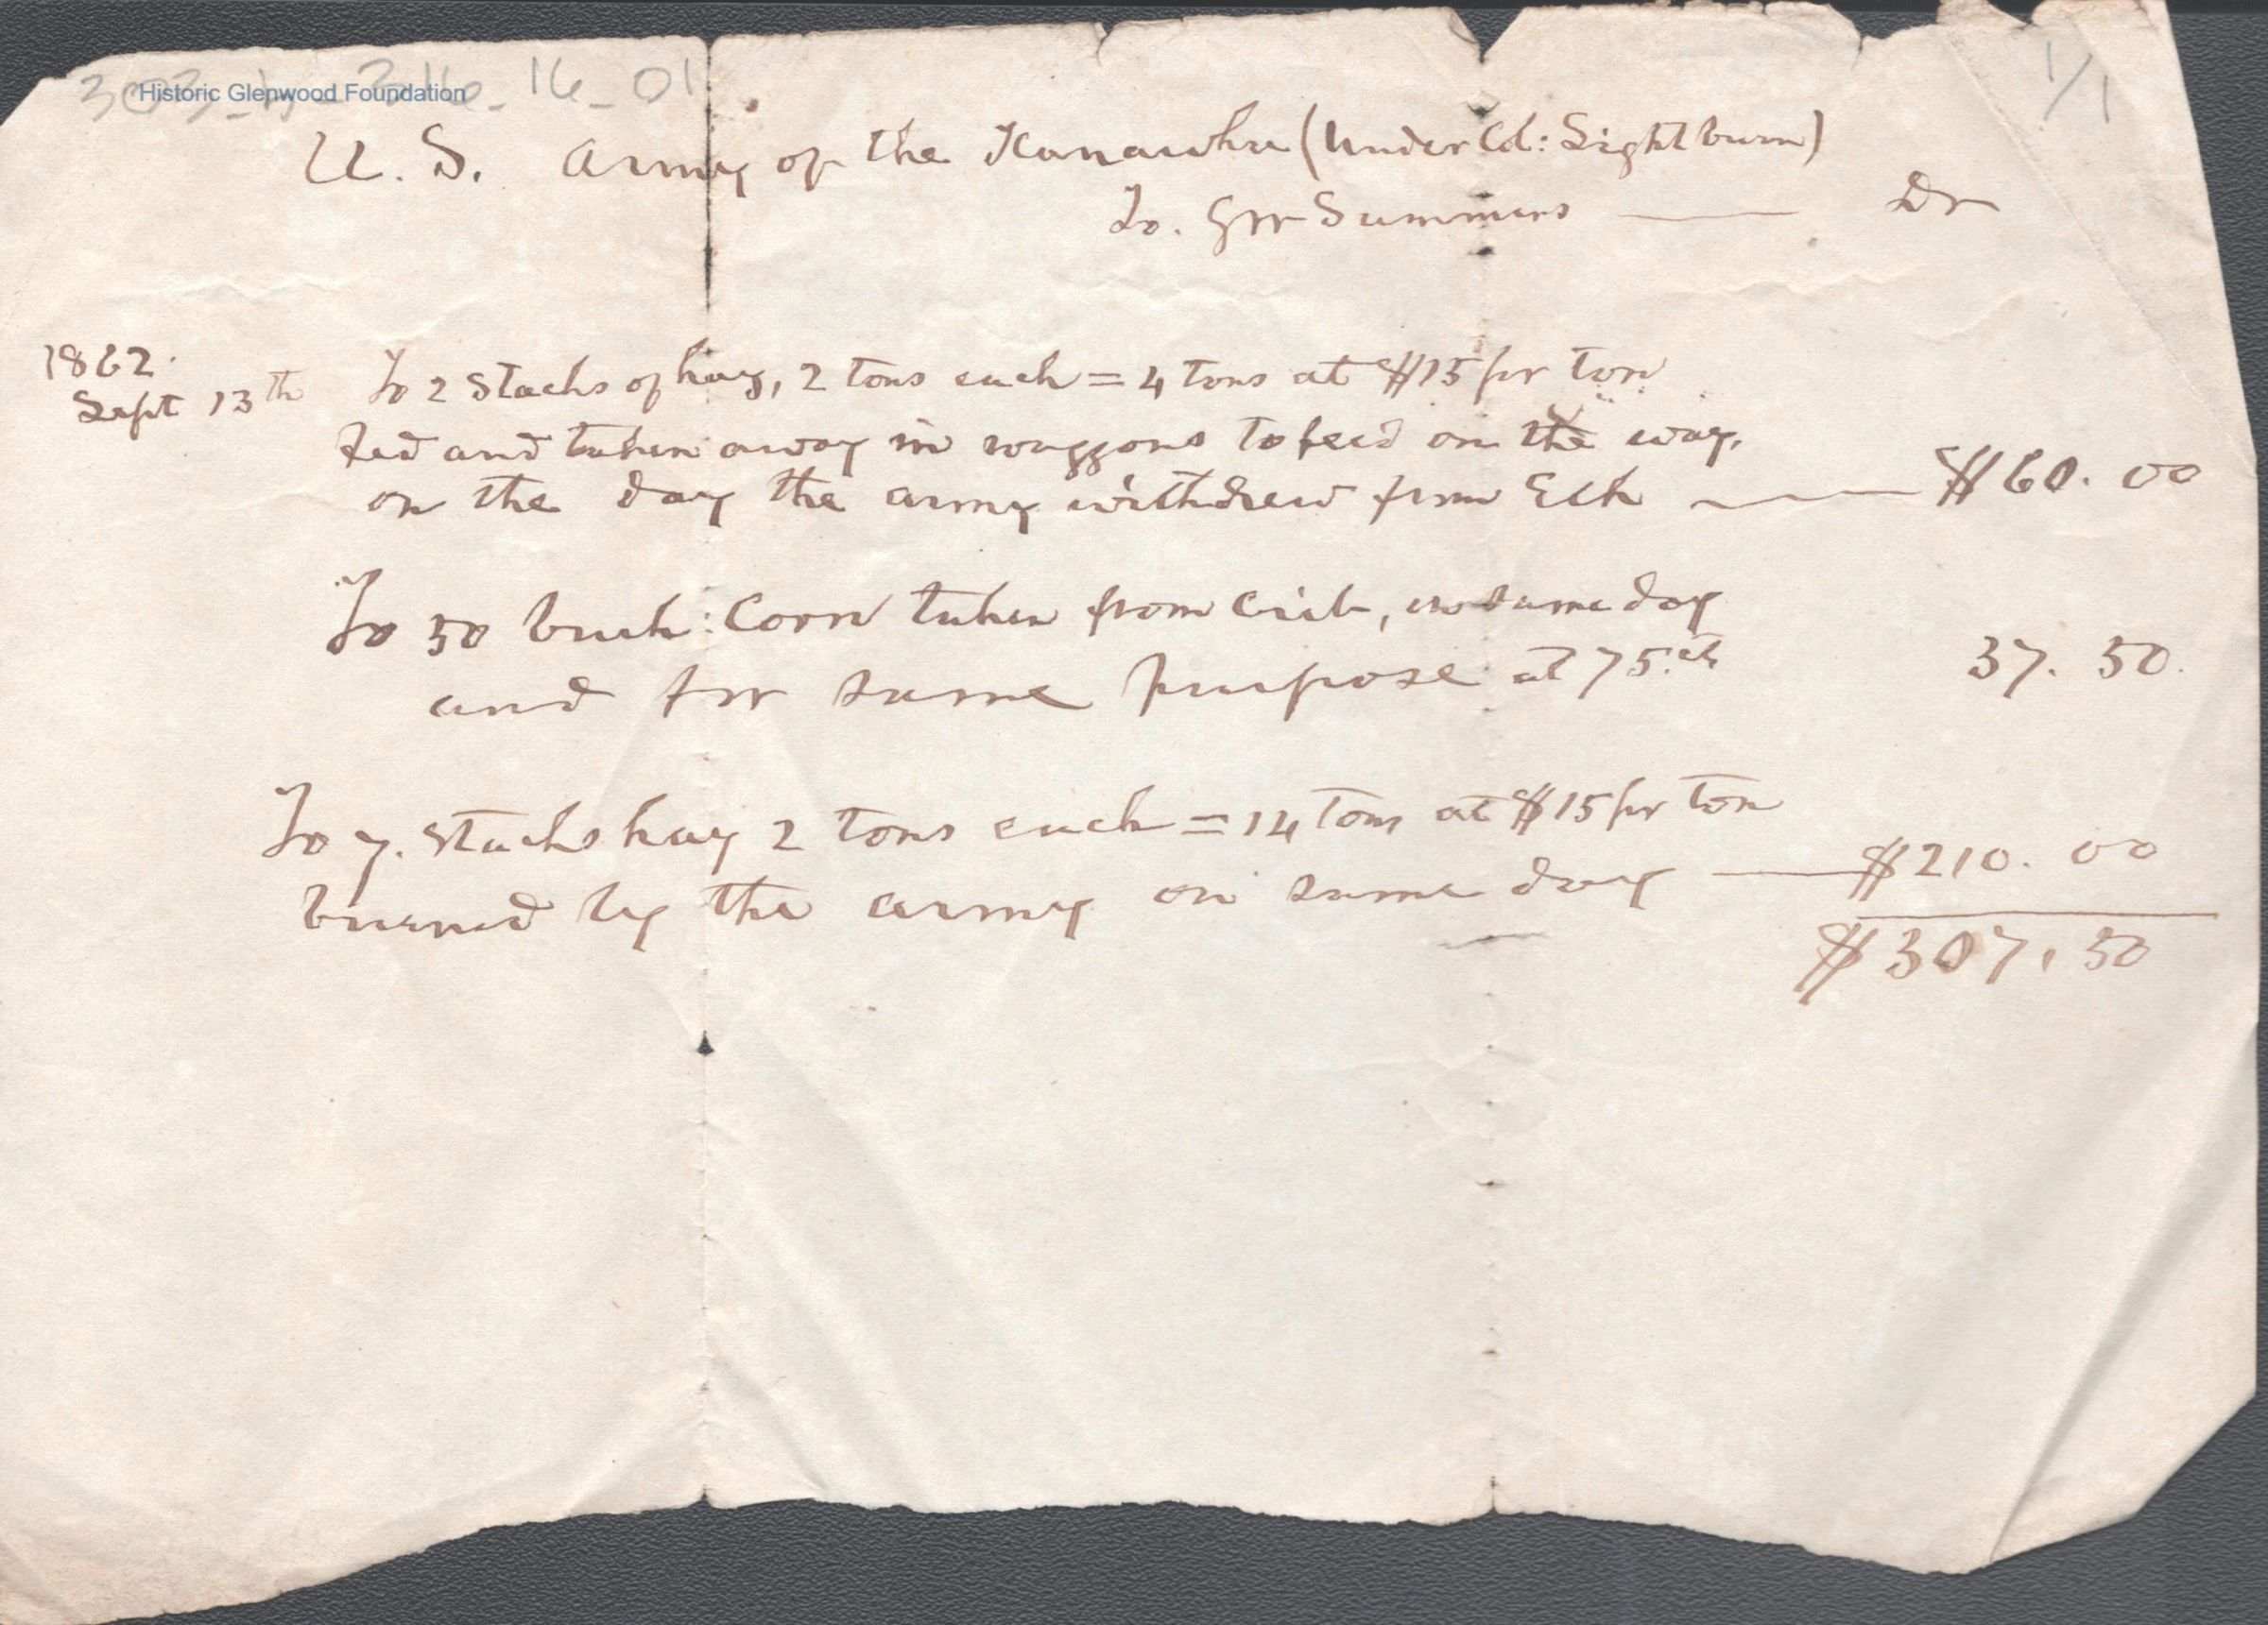 1/1
Historic Glenwood Foundation
U. S. Army of the Kanawha (Under Col: Lightburn)
To. GW Summers — Dr
1862.
Sept 13th To 2 Stacks of hay, 2 tons each = 4 tons at $15 per ton
fed and taken away in waggons to feed on the way,
on the day the army withdrew from Elk — $60.00
To 50 bush: Corn taken from Crib, on same day
and for same purpose at 75.cts 37.50.
To 7. Stacks hay 2 tons each = 14 Tons at $15 per ton
burned by the army on same day — $210.00
$307.50